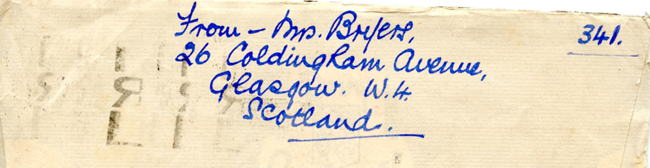 From – Mrs. Bryers,
26 Coldingham Avenue,
Glasgow. W.4.
Scotland.
341.